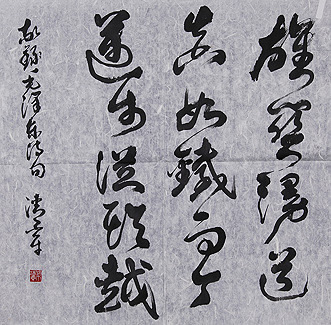 雄關漫道
真如鐵而今
邁步從頭越
敬錄毛澤東詩句